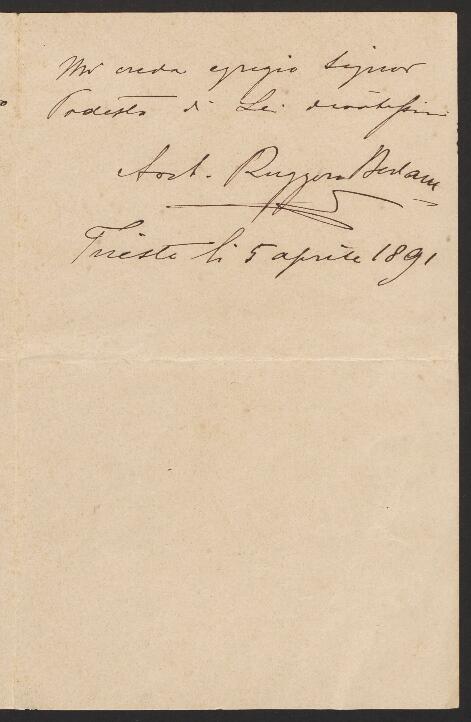 Mi creda egregio Signor
Podestà di Lei devot.ssimo
Arch. Ruggero Berlam
Trieste li 5 aprile 1891